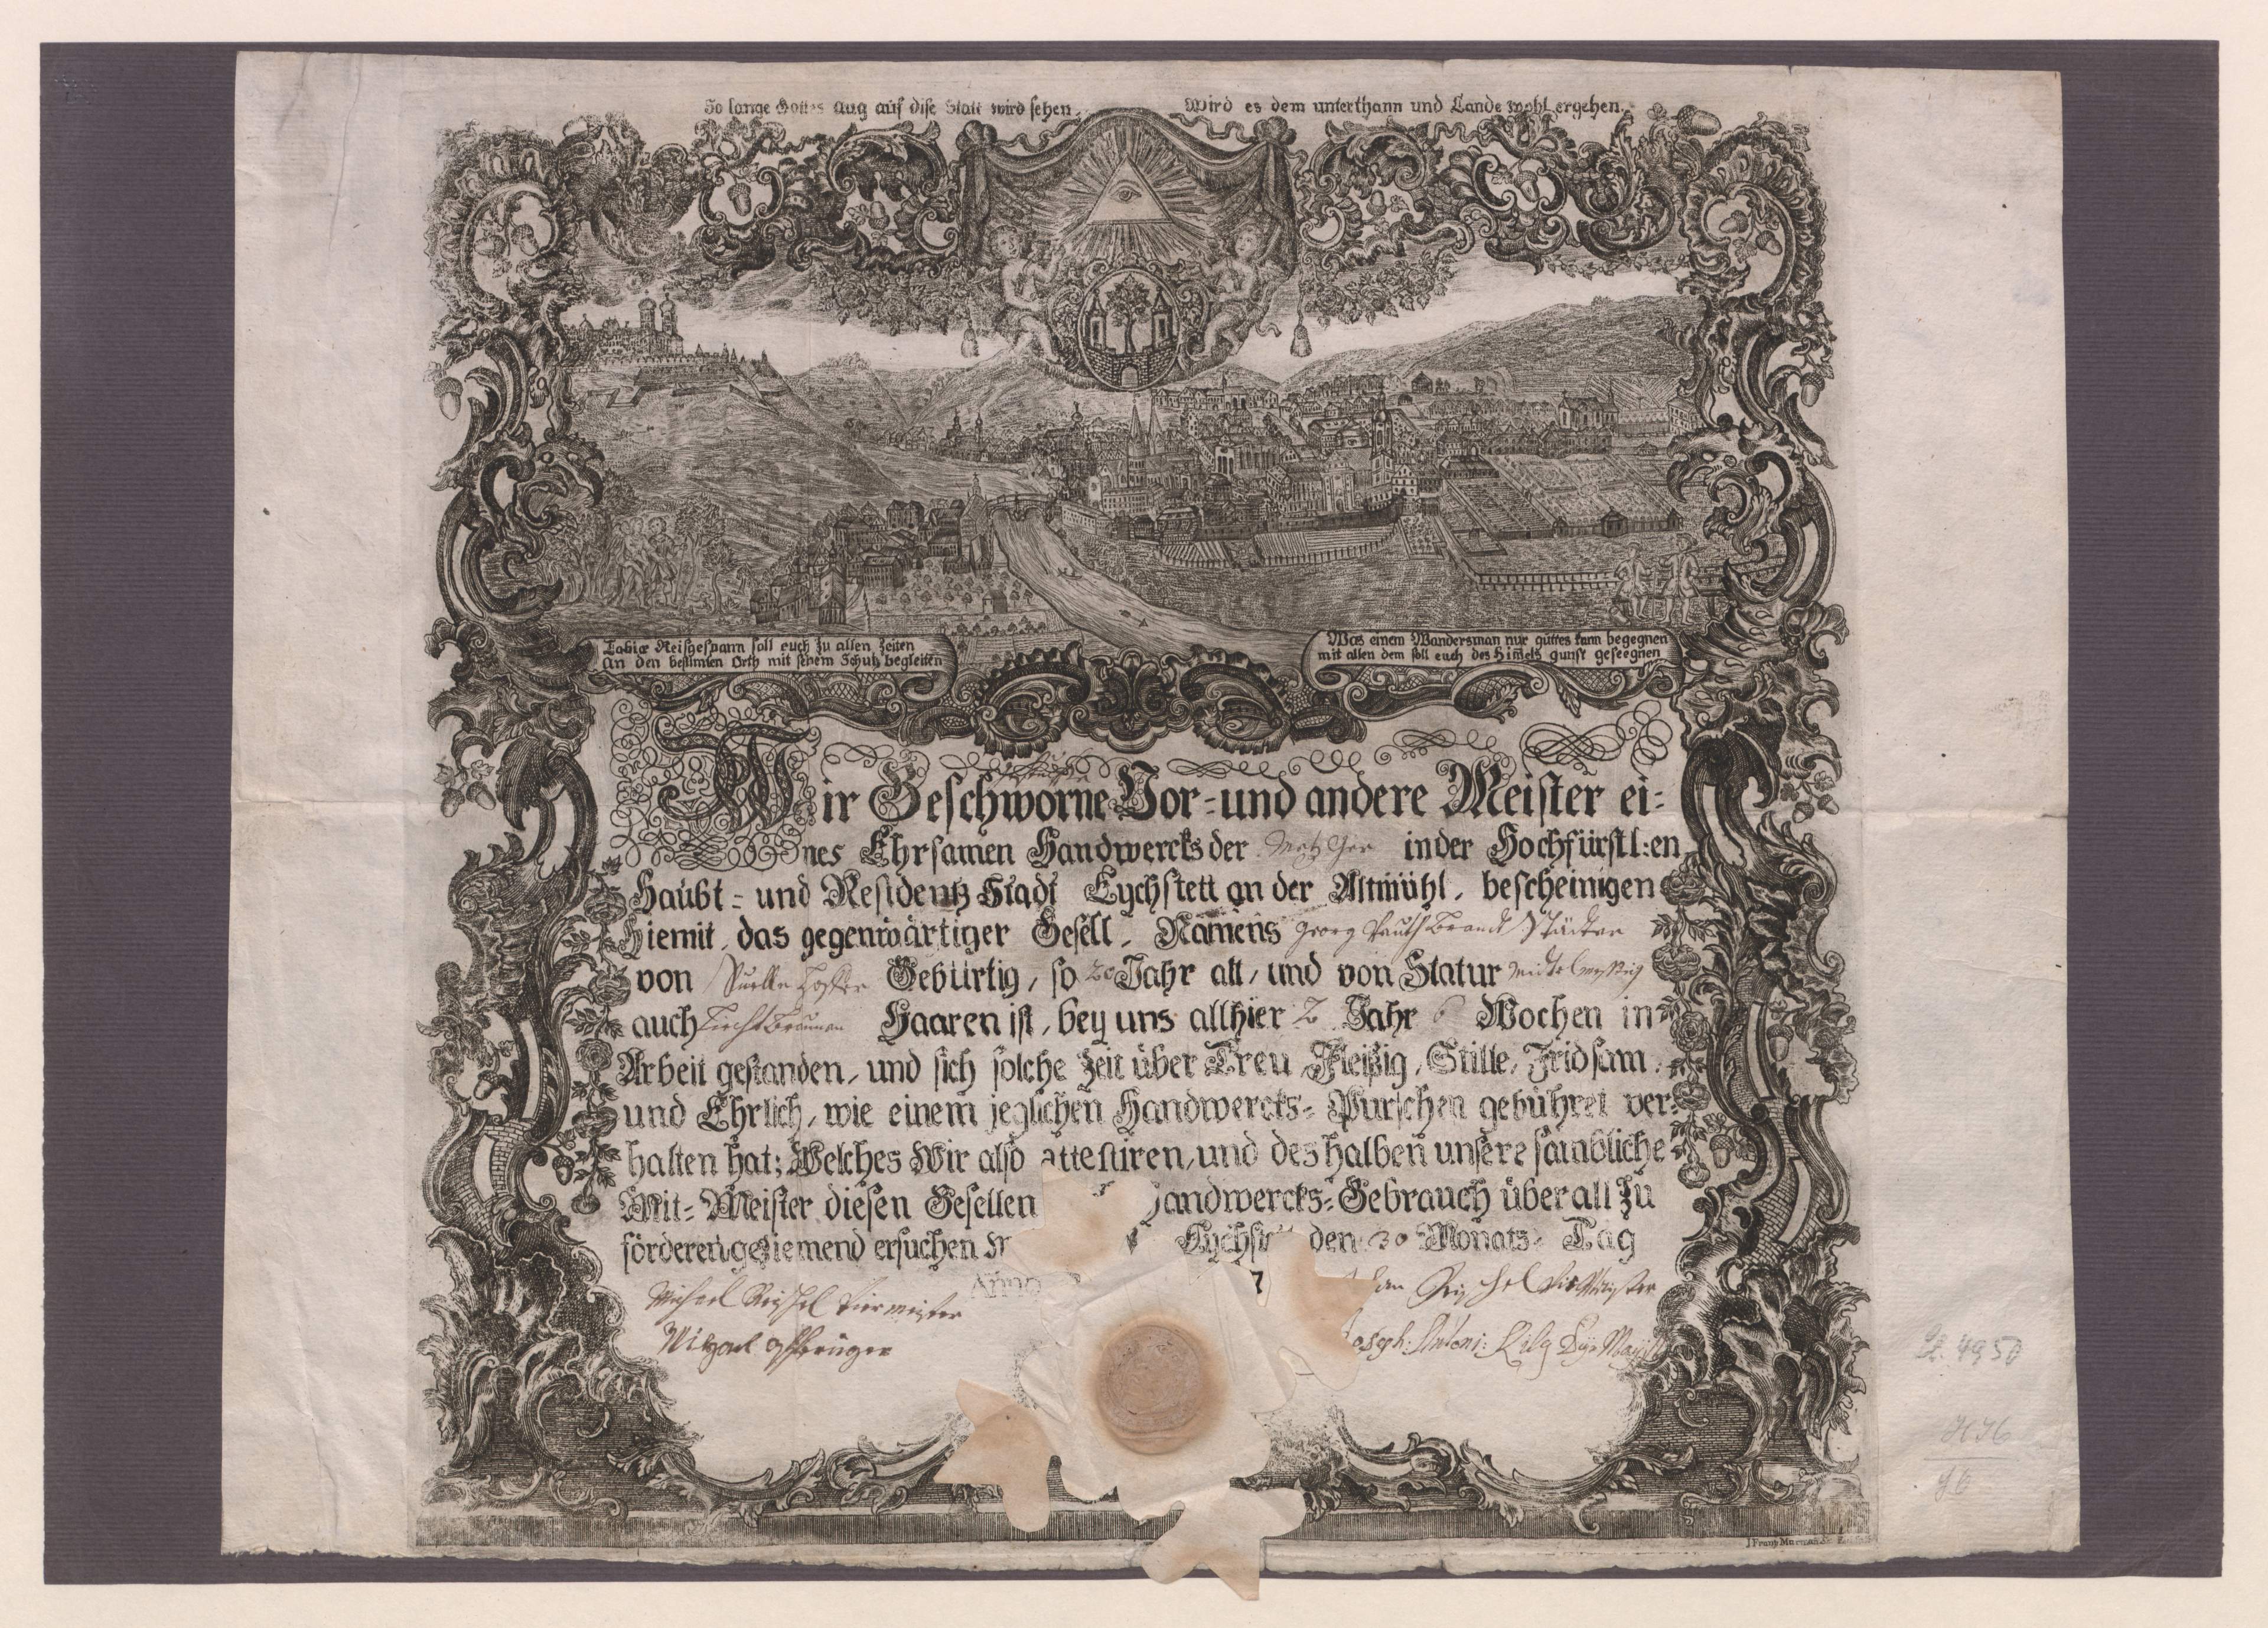 So lange Gottes aug auf dise Statt wird sehen, Wird es dem unterthann und Lande wohl ergehen.
Tobiæ Reisgespann soll euch zu allen Zeiten
An den bestimten Orth mit seinem Schutz begleiten
Was einem Wandersman nur guttes kann begegnen
mit allen dem soll euch des Him̄els gunst geseegnen
Wir Geschworne Vor- und andere Meister ei-
nes Ehrsamen Handwercks der Metzger in der Hochfürstl:en
Haubt- und Residentz Stadt Eychstett an der Altmühl, bescheinigen
hiemit, das gegenwärtiger Gesell, Namens Georg
von Gebürtig, so 20 Jahr alt, und von Statur mittelmessig
auch liecht braunen Haaren ist, bey uns allhier 2 Jahr 6 Wochen in
Arbeit gestanden, und sich solche Zeit über Treu, Fleißig, Stille, Fridsam,
und Ehrlich, wie einem jeglichen Handwercks-Purschen gebühret ver-
halten hat; Welches Wir also attestiren, und deshalben unsere sämbtliche
Mit-Meister diesen Gesellen andwercks-Gebrauch überall zu
förderen geziemend ersuchen Eychst den 30 Monats-Tag
Anno 7
Michael
Michael
Joseph: Antoni:
J Frantz
4950